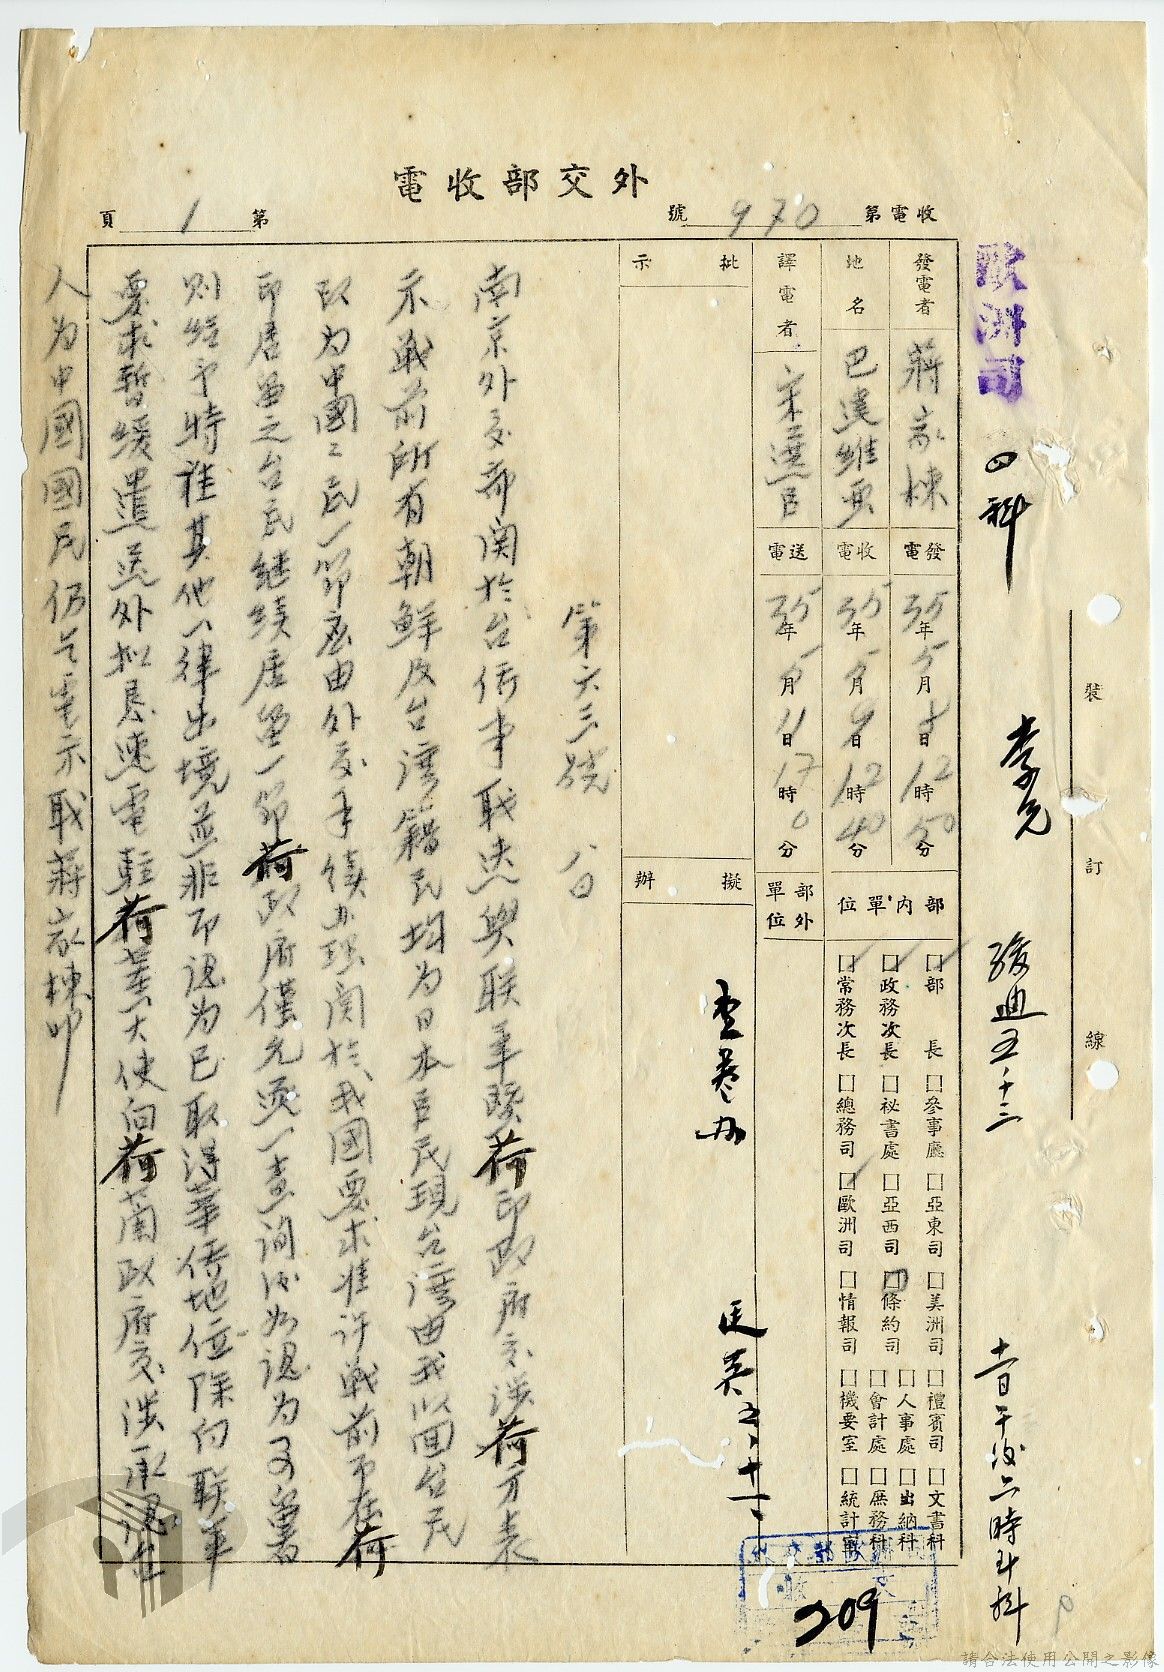 外交部收電
收電第970號
第1頁
歐洲司
四科
裝訂線
發電者
蔣家棟
發電
35年5月8日12時50分
地名
巴達維亞
收電
35年5月9日12時40分
譯電者
送電
35年5月11日17時0分
部內單位
部外單位
□部長□參事廳□亞東司□美洲司□禮賓司□文書科
□人事處□出納科
□政務次長□祕書處□亞西司□條約司□會計處□庶務科
□常務次長□總務司□歐洲司□情報司□機要室□統計室
批示
擬辦
第六三號 八日
南京外交部關於台僑事職與联軍暨荷印政府交涉荷方表
示戰前所有朝鮮及台灣籍民均为日本臣民現台灣由我收回台民
改为中國之民一節應由外交手續办理關於我國要求准许戰前不在荷
印居留之台民继續居留一節荷政府僅允逐一查询後如認为可留者
则给予特准其他一律出境並非即認为已取得華僑地位除向联軍
要求暫缓遣送外拟恳速電駐荷董大使向荷蘭政府交涉承認台
人为中國國民仍乞電示職蔣家棟叩
209
請合法使用公開之影像